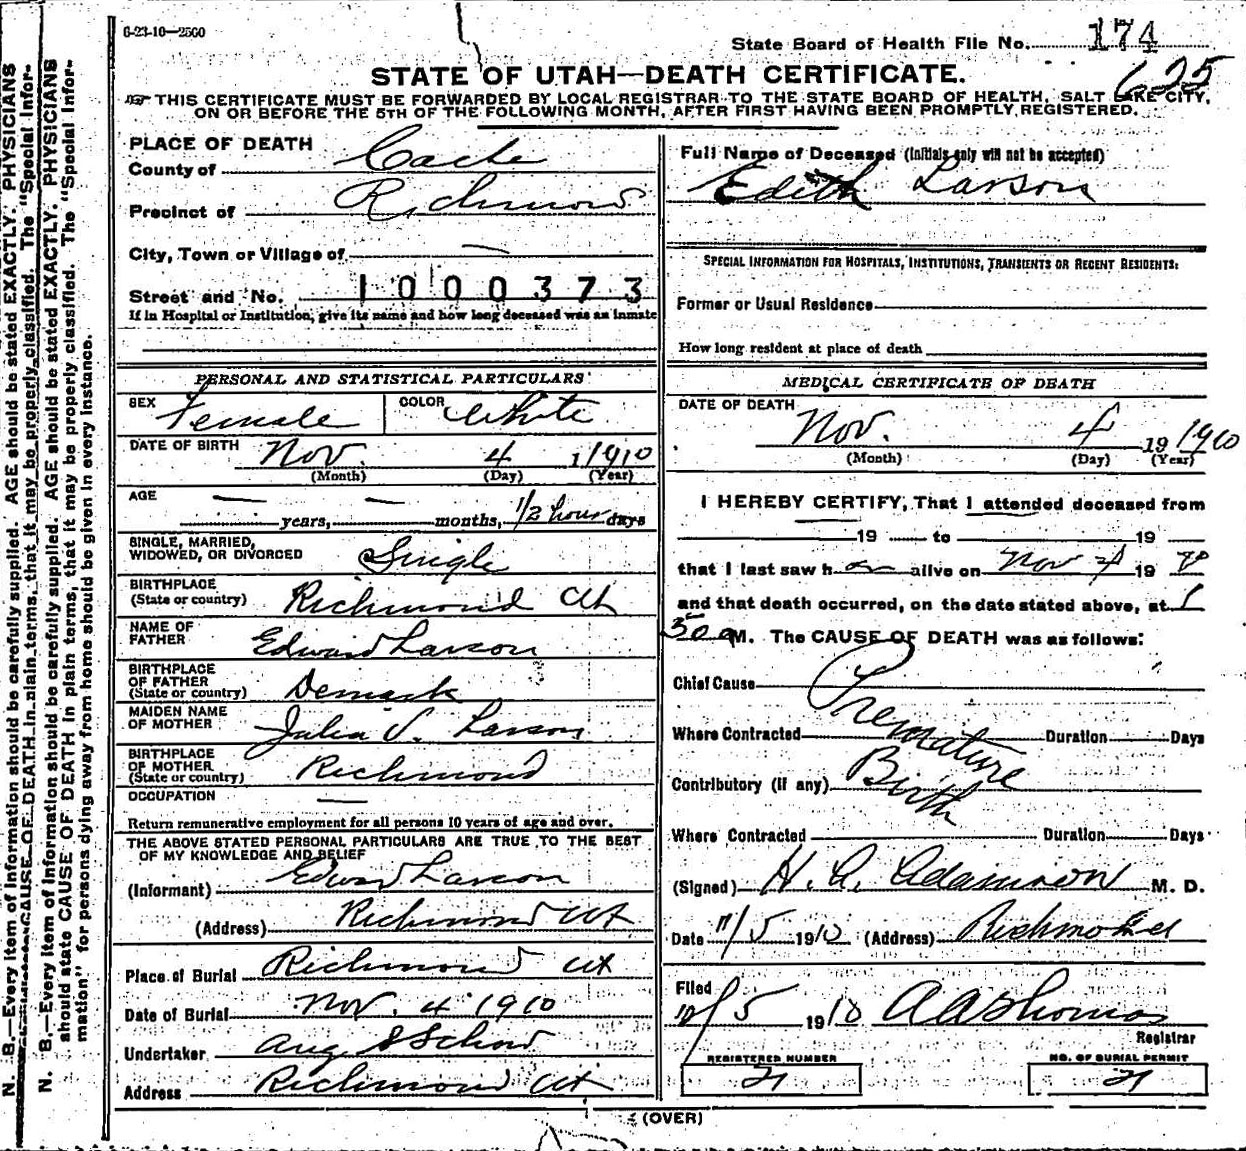 6-23-10—2500
State Board of Health File No. 174
625
STATE OF UTAH—DEATH CERTIFICATE.
THIS CERTIFICATE MUST BE FORWARDED BY LOCAL REGISTRAR TO THE STATE BOARD OF HEALTH, SALT LAKE CITY,
ON OR BEFORE THE 5TH OF THE FOLLOWING MONTH, AFTER FIRST HAVING BEEN PROMPTLY REGISTERED.
PLACE OF DEATH
County of Cache
Precinct of Richmond
City, Town or Village of —
Street and No. 1000373
If in Hospital or Institution, give its name and how long deceased was an inmate
PERSONAL AND STATISTICAL PARTICULARS
SEX Female COLOR White
DATE OF BIRTH Nov. 4 1910
(Month) (Day) (Year)
AGE
— years, — months, 1/2 hour days
SINGLE, MARRIED,
WIDOWED, OR DIVORCED Single
BIRTHPLACE
(State or country) Richmond Ut
NAME OF
FATHER Edward Larson
BIRTHPLACE
OF FATHER
(State or country) Demark
MAIDEN NAME
OF MOTHER Julia V. Larson
BIRTHPLACE
OF MOTHER
(State or country) Richmond
OCCUPATION —
Return remunerative employment for all persons 10 years of age and over.
THE ABOVE STATED PERSONAL PARTICULARS ARE TRUE TO THE BEST
OF MY KNOWLEDGE AND BELIEF
(Informant) Edward Larson
(Address) Richmond Ut
Place of Burial Richmond Ut
Date of Burial Nov. 4 1910
Undertaker Aug S Schow
Address Richmond Ut
Full Name of Deceased (Initials only will not be accepted)
Edith Larson
SPECIAL INFORMATION FOR HOSPITALS, INSTITUTIONS, TRANSIENTS OR RECENT RESIDENTS:
Former or Usual Residence
How long resident at place of death
MEDICAL CERTIFICATE OF DEATH
DATE OF DEATH
Nov. 4 19 1910
(Month) (Day) (Year)
I HEREBY CERTIFY, That I attended deceased from
— 19 to 19
that I last saw h er alive on Nov 4 19
and that death occurred, on the date stated above, at 1
50 a M. The CAUSE OF DEATH was as follows:
Chief Cause Premature
Where Contracted Duration Days
Contributory (if any) Birth
Where Contracted Duration Days
(Signed) H. A. Adamson M. D.
Date 11/5 1910 (Address) Richmond
Filed
5 1910 A A Thomas
Registrar
REGISTERED NUMBER
21
NO. OF BURIAL PERMIT
21
(OVER)
N. B.—Every item of information should be carefully supplied. AGE should be stated EXACTLY. PHYSICIANS
should state CAUSE OF DEATH in plain terms, that it may be properly classified. The "Special Infor-
N. B.—Every item of information should be carefully supplied. AGE should be stated EXACTLY. PHYSICIANS
should state CAUSE OF DEATH in plain terms, that it may be properly classified. The "Special Infor-
mation" for persons dying away from home should be given in every instance.